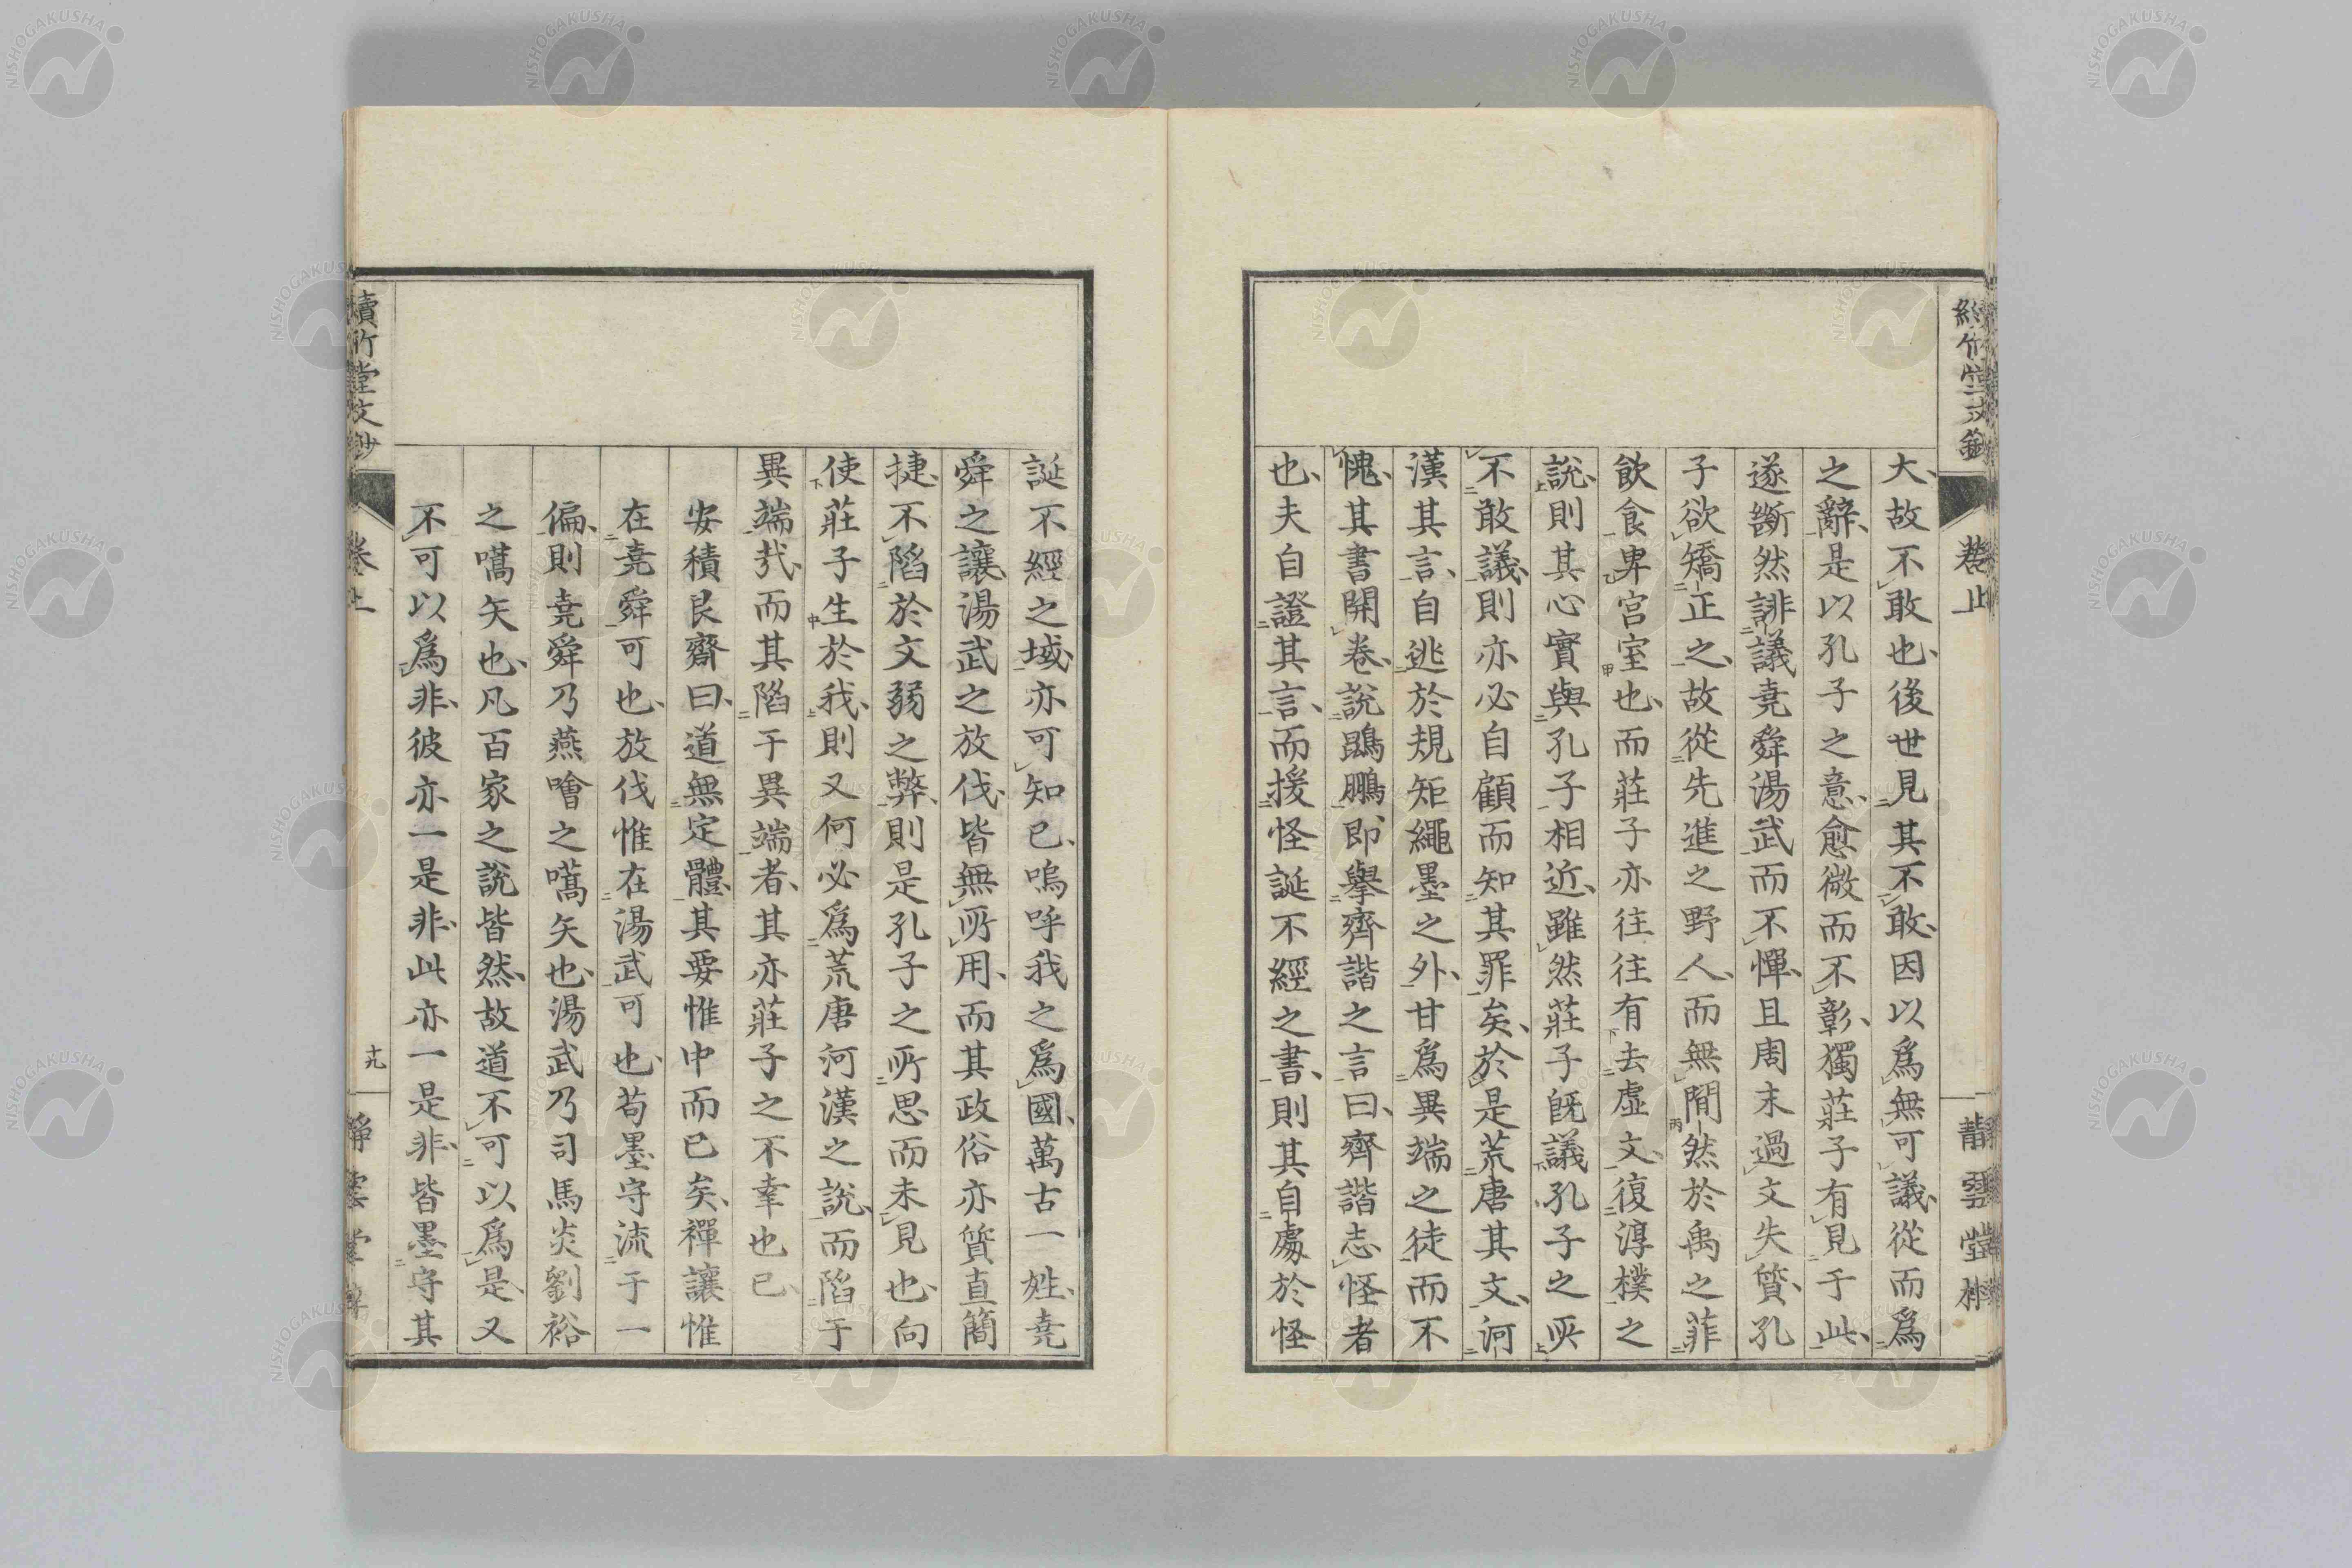 大、故不敢也、後世見其不敢、因以爲無可議、從而爲
之辭、是以孔子之意、愈微而不彰、獨莊子有見于此、
遂斷然誹議堯舜湯武而不憚、且周末過文失質、孔
子欲矯正之、故從先進之野人、而無間然於禹之菲
飲食卑宮室也、而莊子亦往往有去虛文、復淳樸之
說、則其心實與孔子相近、雖然莊子既議孔子之所
不敢議、則亦必自顧而知其罪矣、於是荒唐其文、河
漢其言、自逃於規矩繩墨之外、甘爲異端之徒而不
愧、其書開卷、說鵾鵬、即擧齊諧之言曰、齊諧志怪者
也、夫自證其言、而援怪誕不經之書、則其自處於怪
誕不經之域、亦可知已、嗚呼我之爲國、萬古一姓、堯
舜之讓湯武之放伐、皆無所用、而其政俗亦質直簡
捷、不陷於文弱之弊、則是孔子之所思而未見也、向
使莊子生於我、則又何必爲荒唐河漢之說、而陷于
異端哉、而其陷于異端者、其亦莊子之不幸也已、
安積艮齋曰、道無定體、其要惟中而已矣、禪讓惟
在堯舜可也、放伐惟在湯武可也、苟墨守流于一
偏、則堯舜乃燕噲之嚆矢也、湯武乃司馬炎劉裕
之嚆矢也、凡百家之說皆然、故道不可以爲是、又
不可以爲非、彼亦一是非、此亦一是非、皆墨守其
續竹堂文鈔
卷上
十九
靜雲堂